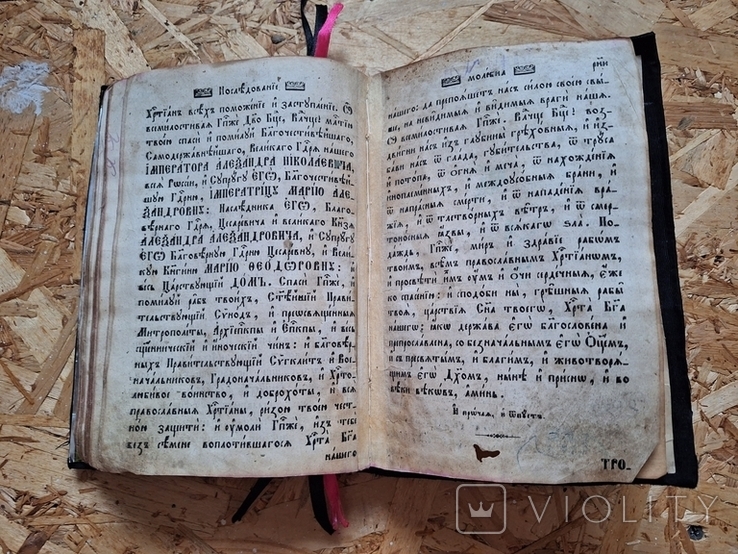 Послѣдованїе
Хрⷭ҇тїанъ всѣхъ поможенїе и҆ застꙋпленїе. Ѽ
всемилостивая Гпⷭ҇же Дв҃о Бц҃е, Влⷣчце
твоею спаси и҆ помилꙋй Благочестивѣйшаго,
Самодержавнѣйшаго, Великаго Гдⷭ҇ря нашего
І҆МПЕРАТОРА АЛЕѮАНДРА НІКОЛАЕВИЧА,
всея Рѡссїи, и҆ Сꙋпрꙋгꙋ Є҆ГѠ̀, Благочестивѣй-
шꙋю Гдⷭ҇рню, І҆МПЕРАТРІЦꙊ МАРІЮ АЛЕ-
ѮАНДРОВНꙊ: Наслѣдника Є҆ГѠ̀, Благо-
вѣрнаго Гдⷭ҇ря, Цесаревича и҆ великаго Кнѧ҃зя
АЛЕѮАНДРА АЛЕѮАНДРОВИЧА, и҆ Сꙋпрꙋгꙋ
Є҆ГѠ̀ Благовѣрнꙋю Гдⷭ҇рню Цесаревнꙋ, и҆ Вели-
кꙋю Кнѧгиню МАРІЮ ѲЕОДѠРОВНꙊ: и҆
весь Царствꙋющїй ДОМЪ. Спаси Гпⷭ҇же, и҆
помилꙋй рабъ твоихъ, Ст҃ѣйшїй Прави-
тельствꙋющїй Сѵнодъ, и҆ преѡсвященныя
Митрополїты, Архїепⷭ҇копы и҆ Епⷭ҇копы, и҆ весь
священническїй и҆ и҆ноческїй чинъ: и҆ благовѣр-
ныхъ Правительствꙋющїй Сѵгклитъ и҆ Вое-
начальникѡвъ, Градоначальникѡвъ, и҆ Хрⷭ҇то-
любивое воинство, и҆ доброхоты, и҆ вся
православныя Хрⷭ҇тїаны, ризою твоею чест-
ною защити: и҆ ᲂу҆моли Гпⷭ҇же, и҆зъ тебе
безъ сѣмене воплотившагося Хрⷭ҇та Бг҃а
нашего
молебна
рни
нашего: да препояшетъ насъ силою своею свы-
ше, на невидимыя и҆ видимыя враги нашя.
Ѽ всемилостивая Гпⷭ҇же Влⷣчце Бц҃е! воз-
двигни насъ и҆зъ глꙋбины грѣховныя, и҆ и҆з-
бави насъ ѿ глада, гꙋбительства, ѿ трꙋса
и҆ потопа, ѿ ѻ҆гня и҆ меча, ѿ нахожденїя
и҆ноплеменныхъ, и҆ междоꙋсобныя брани, и҆
ѿ напрасныя смерти, и҆ ѿ нападенїя вра-
жїя, и҆ ѿ тлетворныхъ вѣтръ, и҆ ѿ смер-
тоносныя ꙗ҆звы, и҆ ѿ всякагѡ ѕла. По-
даждь, Гпⷭ҇же, миръ и҆ здравїе рабѡмъ
твоимъ, всѣмъ православнымъ Хрⷭ҇тїанѡмъ,
и҆ просвѣти и҆мъ ᲂу҆мъ и҆ ѻ҆чи сердечныя, є҆же
ко спасенїю: и҆ сподоби ны, грѣшныя рабы
твоя, царствїя Сн҃а твоегѡ, Хрⷭ҇та Бг҃а
нашегѡ; ꙗ҆кѡ держава є҆гѡ̀ благословена и҆
препрославлена, со безначальнымъ є҆гѡ̀ Ѻ҆ц҃емъ,
и҆ съ пресвятымъ, и҆ благимъ, и҆ животворя-
щимъ є҆гѡ̀ Дх҃омъ, нынѣ и҆ приснѡ, и҆ во
вѣки вѣкѡвъ, а҆минь.
И҆ прѡчая, и҆ ѿпꙋстъ.
ТРО-
VIOLITY